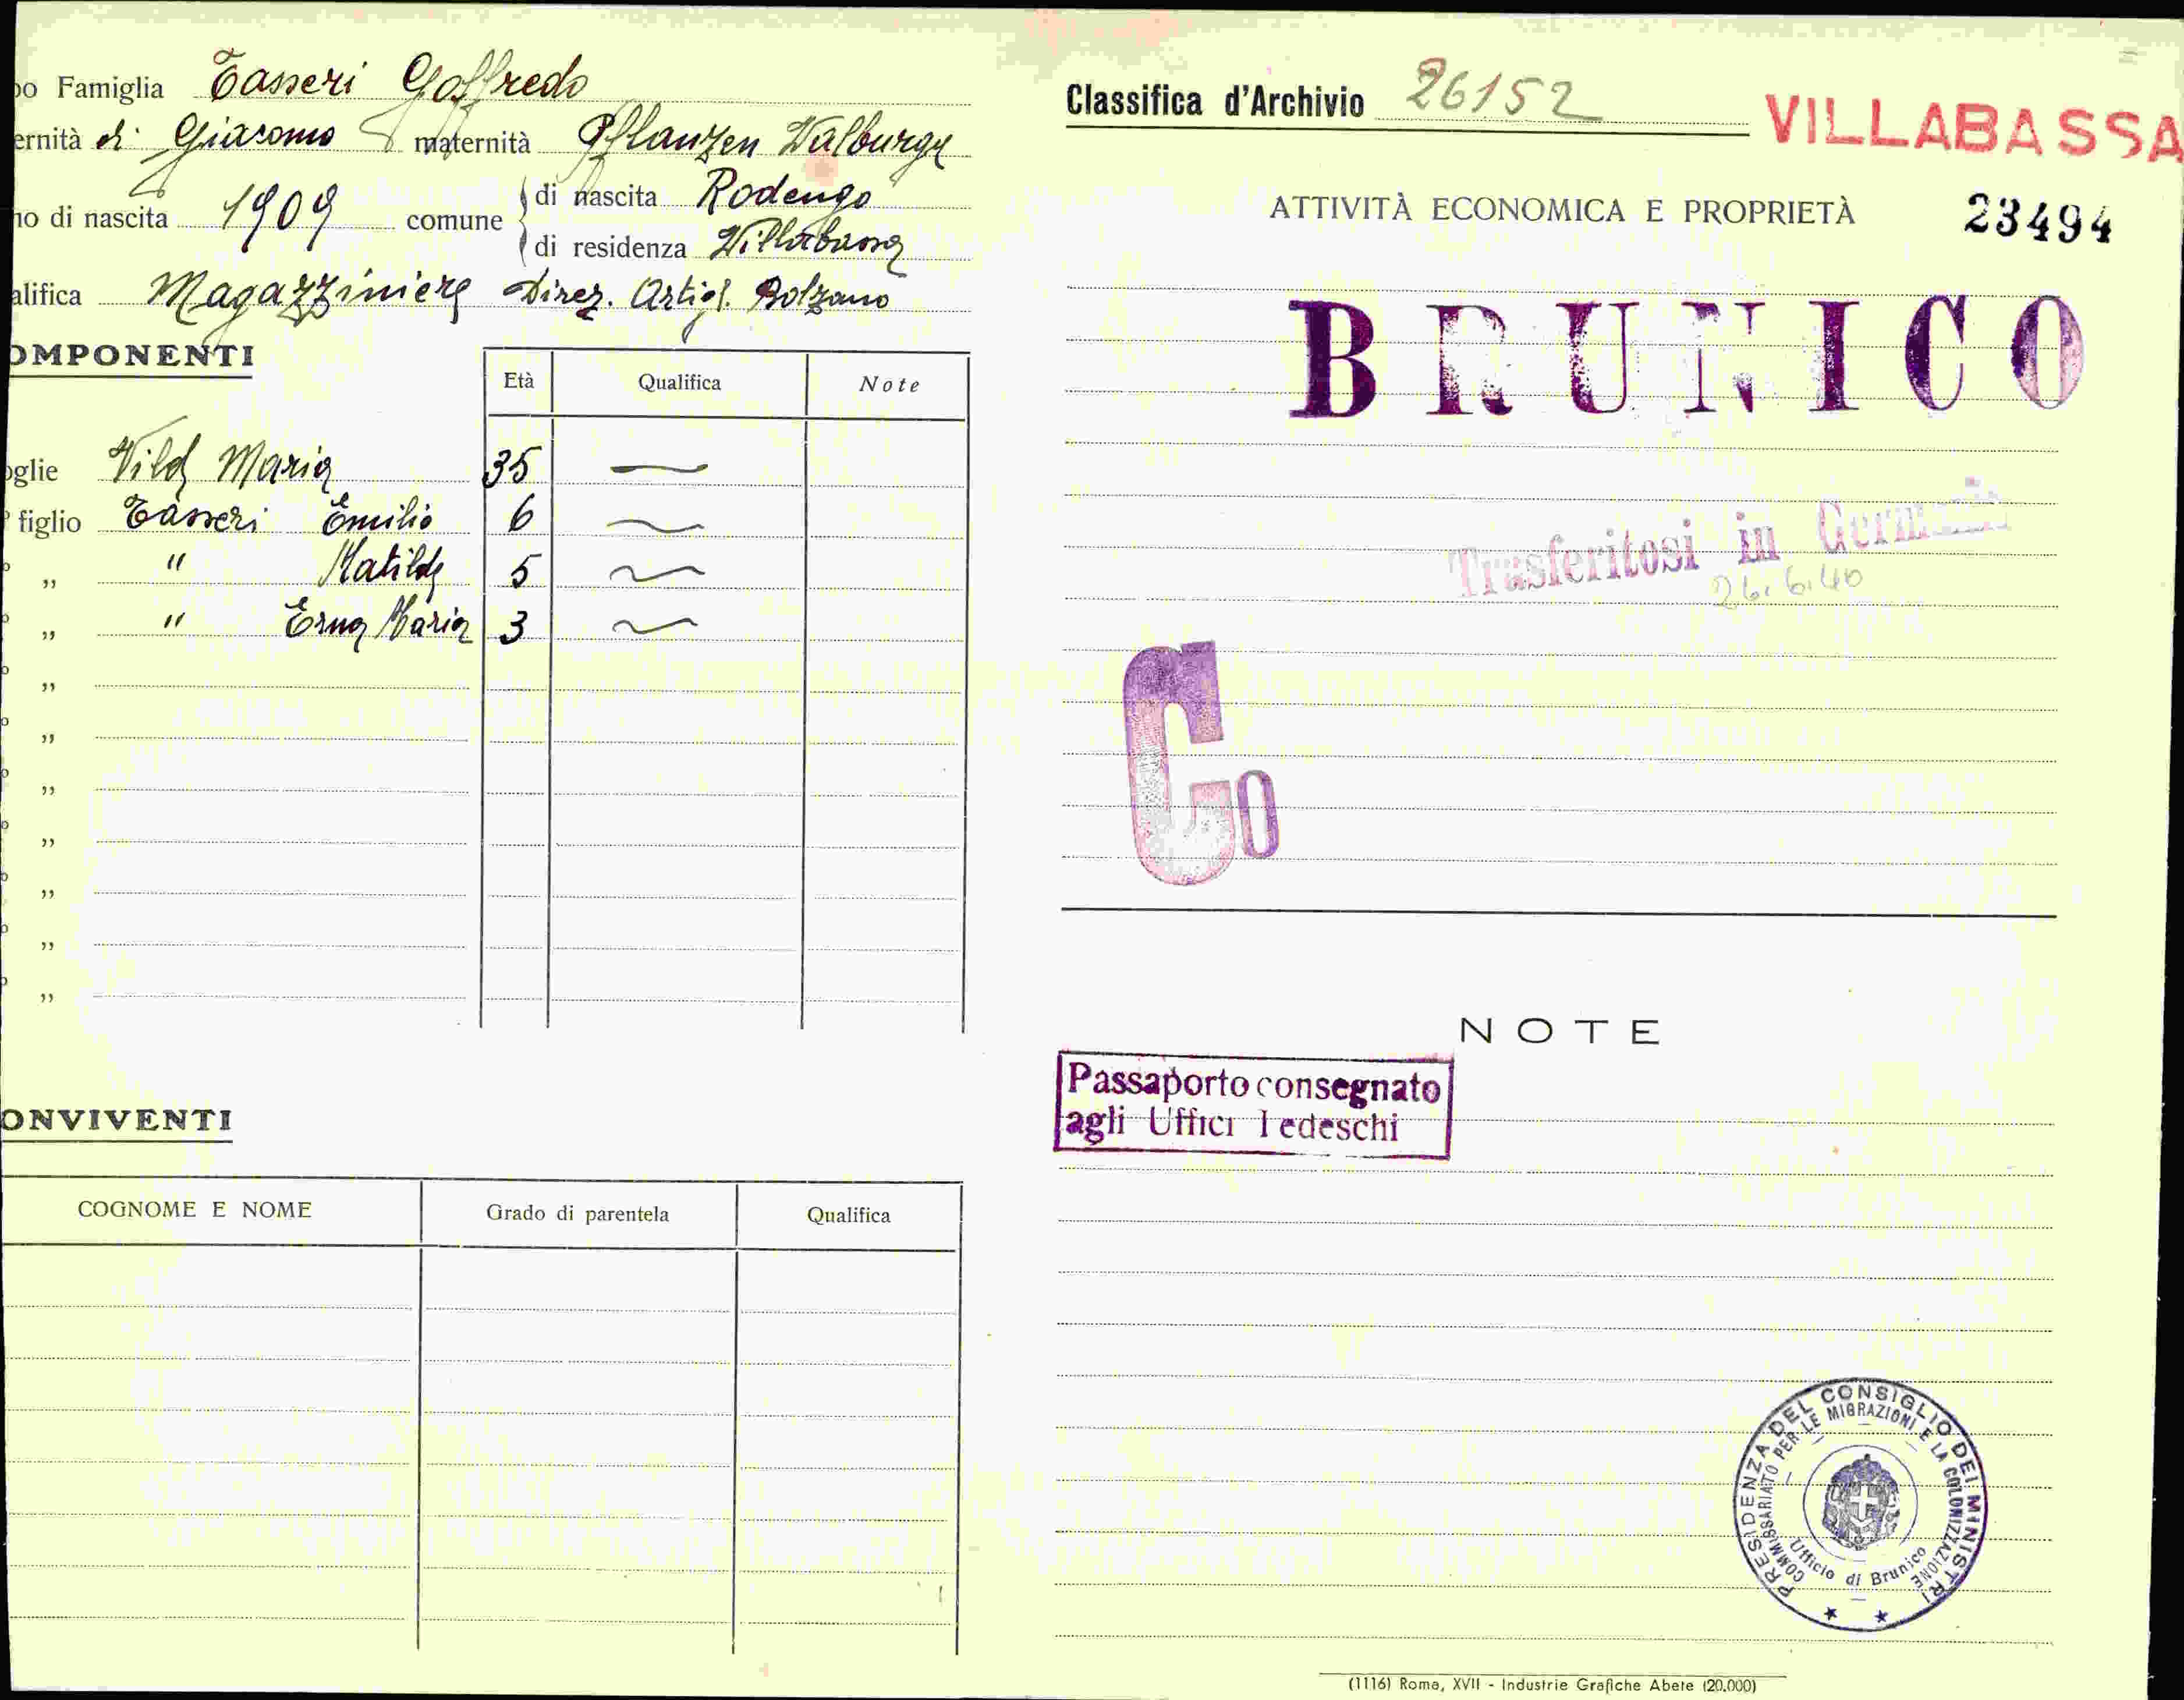 po Famiglia Tasseri Goffredo
ernità di Giacomo maternità Pflanzen Walburga
no di nascita 1909 comune di nascita Rodengo
di residenza Villabassa
alifica Magazziniere Direz. Artigl. Bolzano
OMPONENTI
Età Qualifica Note
oglie Vild Maria 35 —
figlio Tasseri Emilio 6 ~
„ " Matilde 5 ~
„ " Erna Maria 3 ~
„
„
„
„
„
„
„
ONVIVENTI
COGNOME E NOME Grado di parentela Qualifica
Classifica d'Archivio 26152
VILLABASSA
ATTIVITÀ ECONOMICA E PROPRIETÀ 23494
BRUNICO
Trasferitosi in Germania
26.6.40
Co
NOTE
Passaporto consegnato
agli Uffici Tedeschi
PRESIDENZA DEL CONSIGLIO DEI MINISTRI
COMMISSARIATO PER LE MIGRAZIONI E LA COLONIZZAZIONE
Ufficio di Brunico
(1116) Roma, XVII - Industrie Grafiche Abete (20.000)